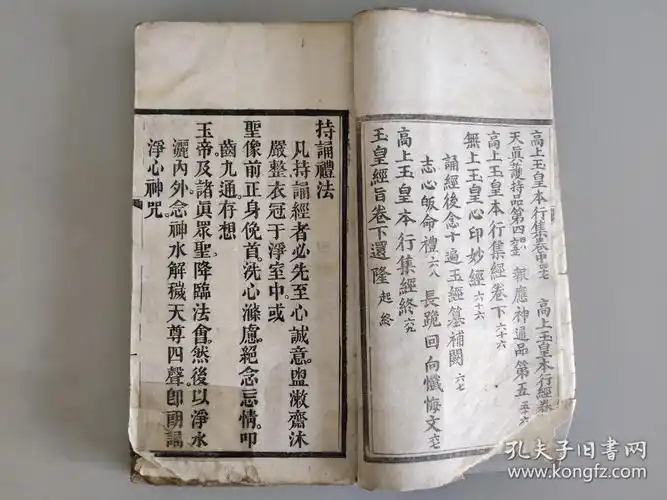 高上玉皇本行集卷中
高上玉皇本行經卷
天眞護持品第四
報應神通品第五
高上玉皇本行集經卷下 六十六
無上玉皇心印妙經 六十六
誦經後念十遍玉經纂補闕 六七
志心皈命禮 六八 長跪回向懺悔文
高上玉皇本行集經終 六九
玉皇經旨卷下還隆 起終
持誦禮法
凡持誦經者必先至心誠意。盥漱齋沐
嚴整衣冠于淨室中。或
聖像前正身俛首。洗心滌慮。絕念忘情。叩
齒九通存想
玉帝及諸眞眾聖。降臨法會。然後以淨水
灑內外。念神水解穢天尊四聲即朗誦
淨心神咒
孔夫子旧书网
www.kongfz.com